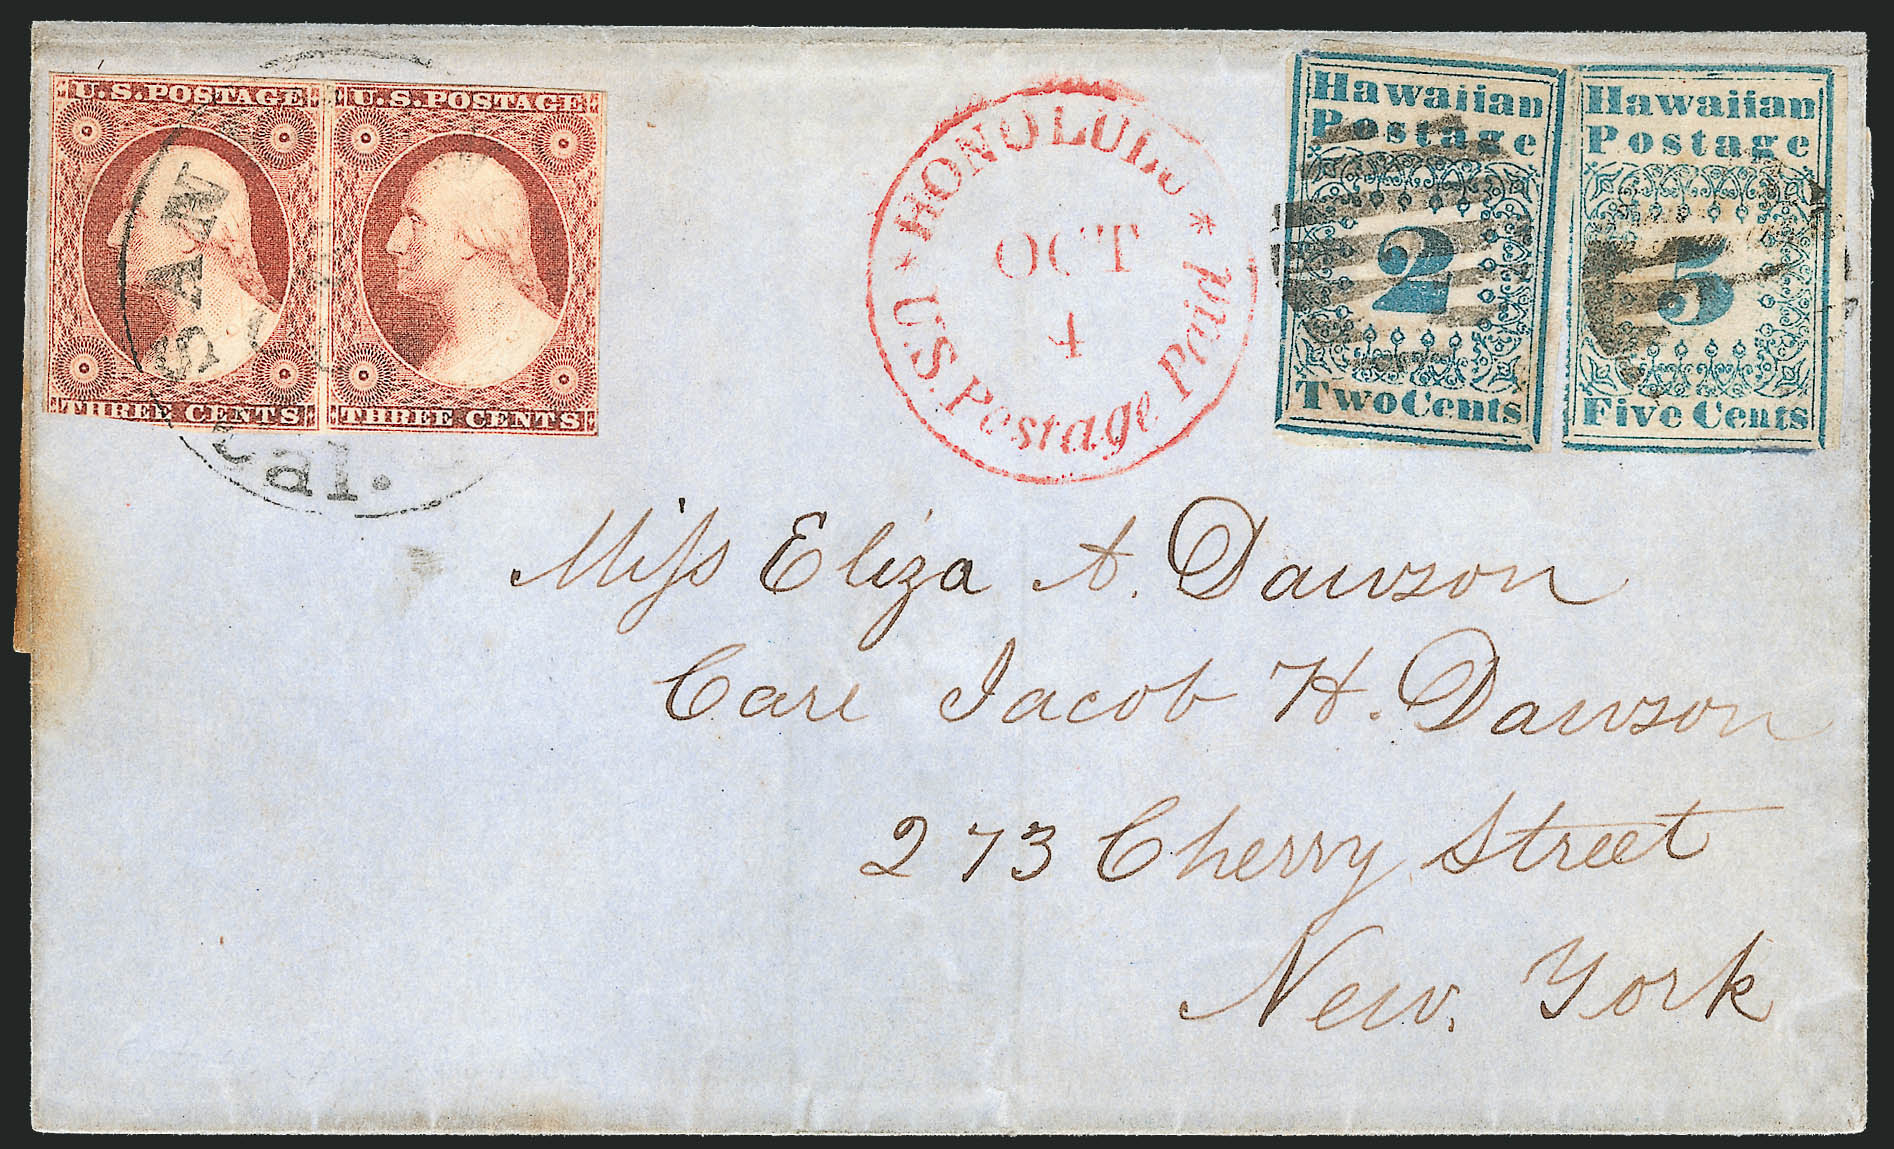 U.S. POSTAGE
THREE CENTS
U.S. POSTAGE
THREE CENTS
SAN
Cal.
* HONOLULU *
OCT
4
U.S. Postage Paid
Hawaiian
Postage
2
Two Cents
Hawaiian
Postage
5
Five Cents
Miss Eliza A. Dawson
Care Jacob H. Dawson
273 Cherry Street
New York